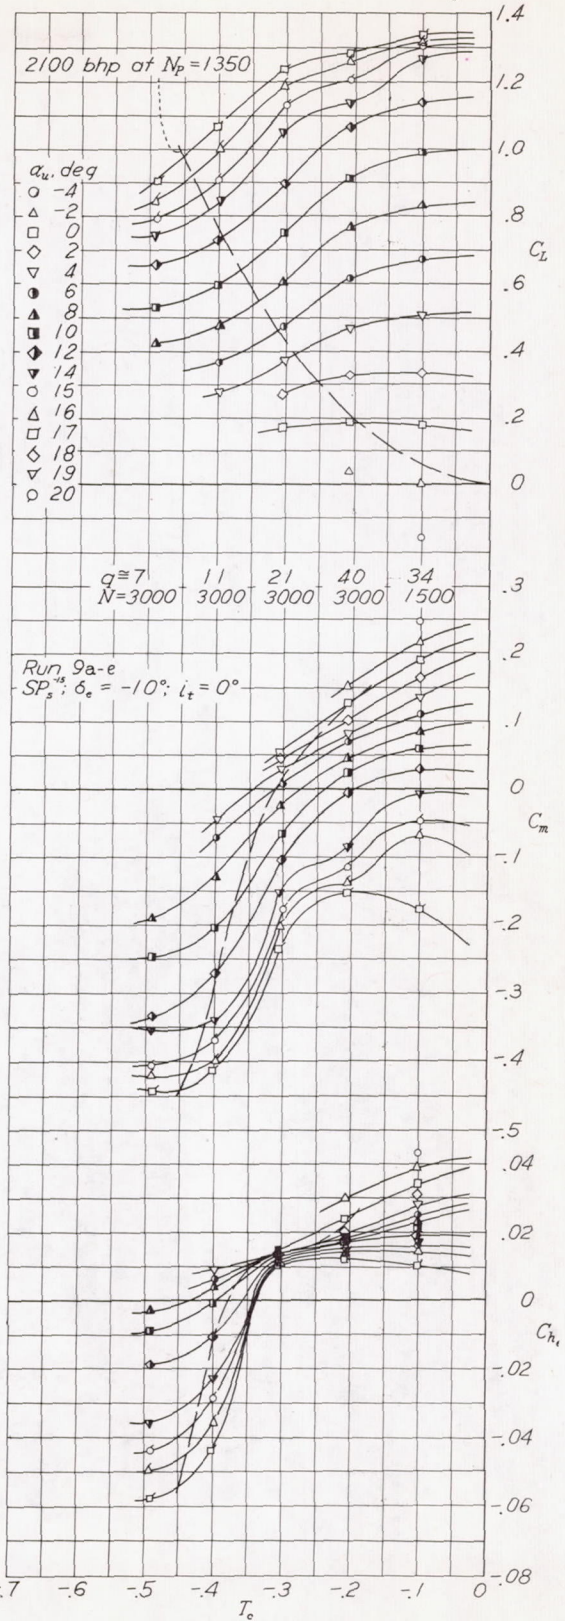 1.4
2100 bhp at Np = 1350
1.2
1.0
αu, deg
-4
-2
0
2
4
6
8
10
12
14
15
16
17
18
19
20
.8
CL
.6
.4
.2
0
q≅7 11 21 40 34
N=3000 3000 3000 3000 1500
.3
Run 9a-e
SPs-15; δe = -10°; it = 0°
.2
.1
0
Cm
-.1
-.2
-.3
-.4
-.5
.04
.02
0
Che
-.02
-.04
-.06
-.08
-.7 -.6 -.5 -.4 -.3 -.2 -.1 0
Tc